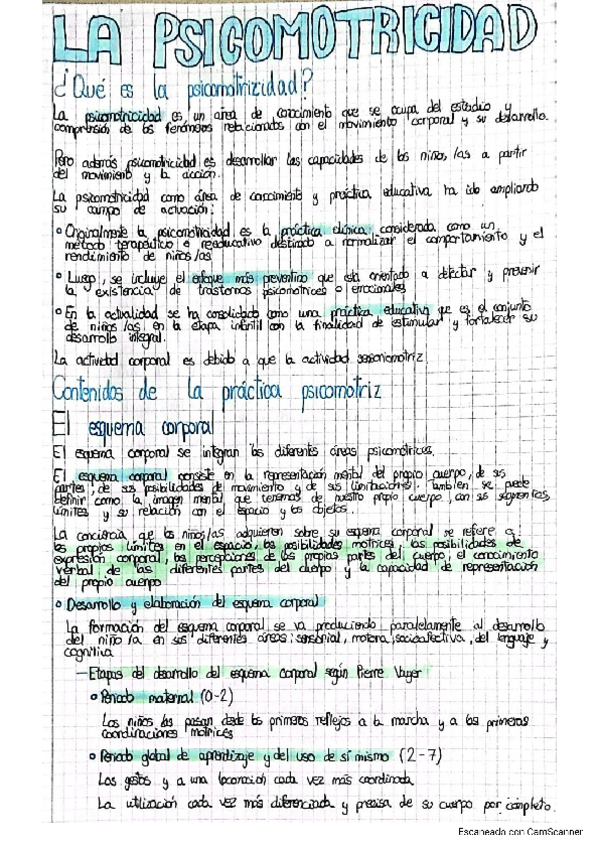 LA PSICOMOTRICIDAD
¿Qué es la psicomotrizidad?
La psicomotricidad es un área de conocimiento que se ocupa del estudio y
comprensión de los fenómenos relacionados con el movimiento corporal y su desarrollo.
Pero además psicomotricidad es desarrollar las capacidades de los niños/as a partir
del movimiento y la acción.
La psicomotricidad como área de conocimiento y práctica educativa ha ido ampliando
su campo de actuación:
• Originalmente la psicomotricidad es la práctica clínica considerada como un
método terapéutico o reeducativo destinado a normalizar el comportamiento y el
rendimiento de niños/as
• Luego, se incluye el enfoque más preventivo que está orientado a detectar y prevenir
la existencia de trastornos psicomotrices o emocionales
• En la actualidad se ha consolidado como una práctica educativa que es el conjunto
de niños/as en la etapa infantil con la finalidad de estimular y fortalecer su
desarrollo integral.
La actividad corporal es debido a que la actividad sensoriomotriz
Contenidos de la práctica psicomotriz
El esquema corporal
El esquema corporal se integran las diferentes áreas psicomotrices.
El esquema corporal consiste en la representación mental del propio cuerpo, de sus
partes, de sus posibilidades de movimiento y de sus limitaciones. También se puede
definir como la imagen mental que tenemos de nuestro propio cuerpo, con sus segmentos,
límites y su relación con el espacio y los objetos.
La conciencia que los niños/as adquieren sobre su esquema corporal se refiere a
los propios límites en el espacio, las posibilidades motrices, las posibilidades de
expresión corporal, las percepciones de las propias partes del cuerpo, el conocimiento
verbal de las diferentes partes del cuerpo y la capacidad de representación
del propio cuerpo
• Desarrollo y elaboración del esquema corporal
La formación del esquema corporal se va produciendo paralelamente al desarrollo
del niño/a en sus diferentes áreas: sensorial, motora, socioafectiva, del lenguaje y
cognitiva
— Etapas del desarrollo del esquema corporal según Pierre Vayer
• Periodo maternal (0-2)
Los niños/as pasan desde los primeros reflejos a la marcha y a las primeras
coordinaciones motrices
• Periodo global de aprendizaje y del uso de sí mismo (2-7)
Los gestos y a una locomoción cada vez más coordinada
La utilización cada vez más diferenciada y precisa de su cuerpo por completo.
Escaneado con CamScanner